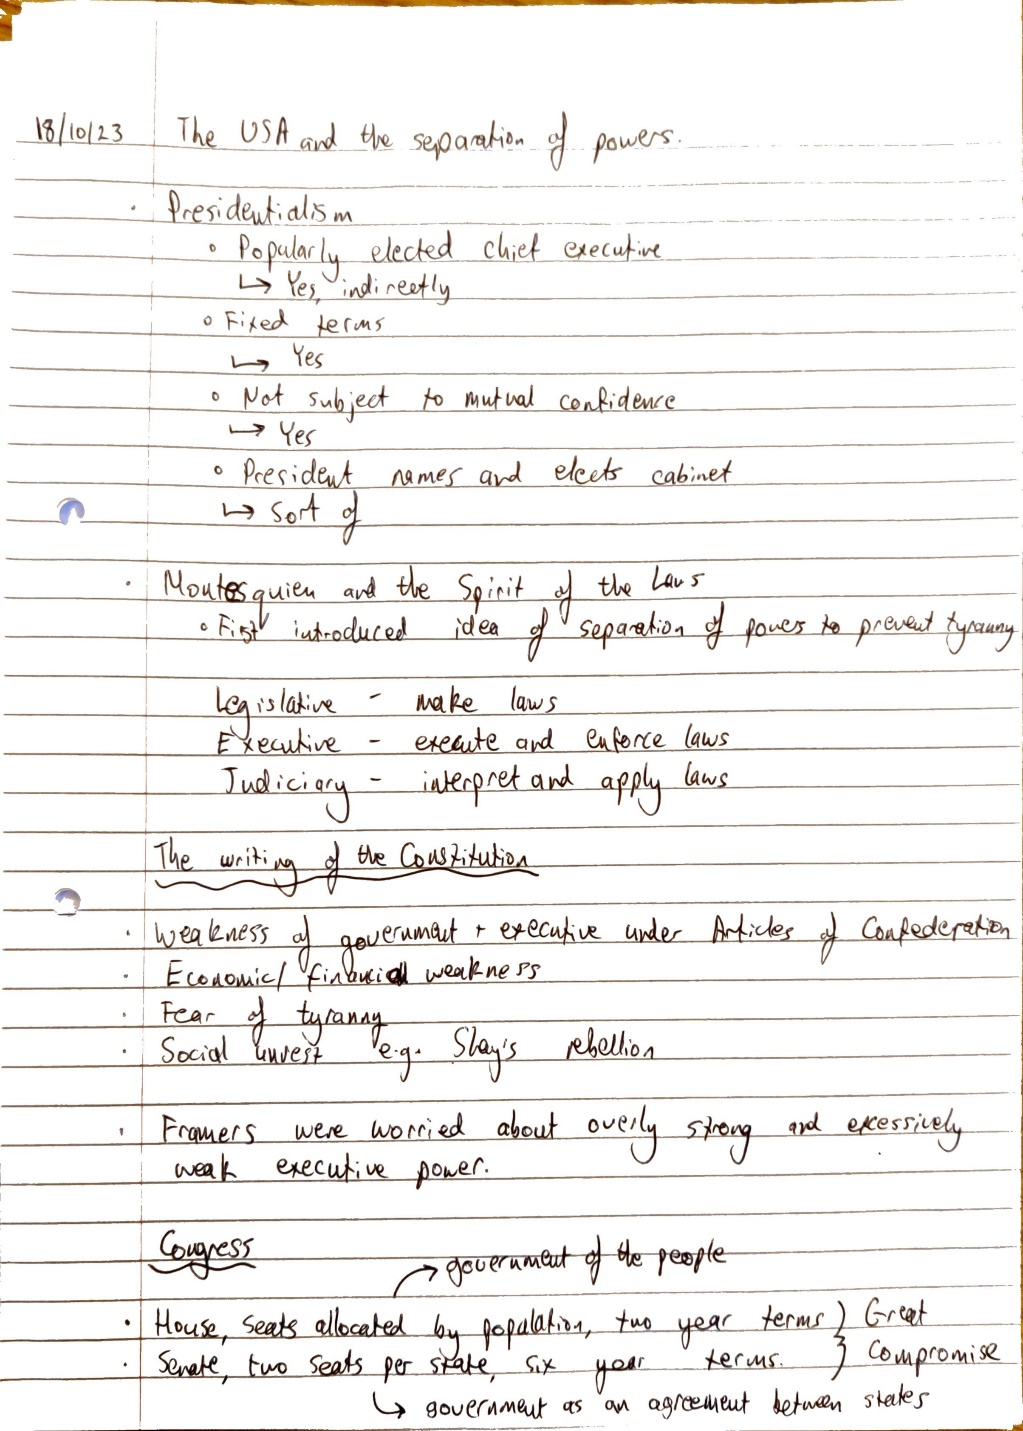 18/10/23 The USA and the separation of powers.
· Presidentialism
∘ Popularly elected chief executive
↳ Yes, indirectly
∘ Fixed terms
↳ Yes
∘ Not subject to mutual confidence
↳ Yes
∘ President names and elects cabinet
↳ Sort of
· Montesquieu and the Spirit of the Laws
∘ First introduced idea of separation of powers to prevent tyranny
Legislative - make laws
Executive - execute and enforce laws
Judiciary - interpret and apply laws
The writing of the Constitution
· Weakness of government + executive under Articles of Confederation
· Economic/ financial weakness
· Fear of tyranny
· Social unrest e.g. Shay's rebellion
· Framers were worried about overly strong and excessively
weak executive power.
Congress
→ government of the people
· House, seats allocated by population, two year terms } Great
· Senate, two seats per state, six year terms. } Compromise
↳ government as an agreement between states